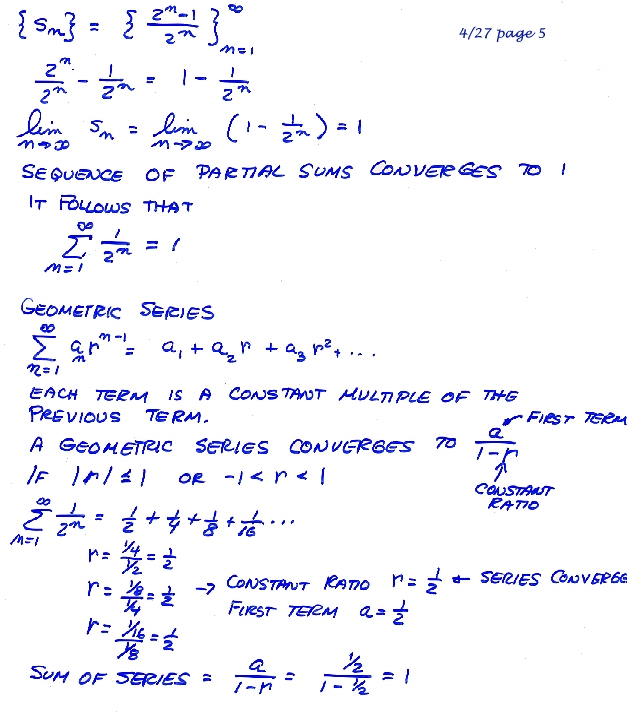 {Sn} = { (2^n - 1)/2^n }_{n=1}^∞
4/27 page 5
2^n/2^n - 1/2^n = 1 - 1/2^n
lim_{n→∞} Sn = lim_{n→∞} (1 - 1/2^n) = 1
SEQUENCE OF PARTIAL SUMS CONVERGES TO 1
IT FOLLOWS THAT
∑_{n=1}^∞ 1/2^n = 1
GEOMETRIC SERIES
∑_{n=1}^∞ a_n r^{n-1} = a_1 + a_2 r + a_3 r^2 + ...
EACH TERM IS A CONSTANT MULTIPLE OF THE
PREVIOUS TERM.
A GEOMETRIC SERIES CONVERGES TO a/(1-r)
FIRST TERM
IF |r| ≤ 1 OR -1 < r < 1
CONSTANT
RATIO
∑_{n=1}^∞ 1/2^n = 1/2 + 1/4 + 1/8 + 1/16 ...
r = (1/4)/(1/2) = 1/2
r = (1/8)/(1/4) = 1/2 → CONSTANT RATIO r = 1/2 ← SERIES CONVERGE
FIRST TERM a = 1/2
r = (1/16)/(1/8) = 1/2
SUM OF SERIES = a/(1-r) = (1/2)/(1 - 1/2) = 1